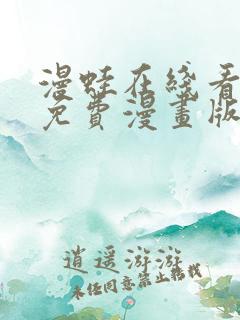 漫蛙在綫看
免費漫畫版
逍遥游游
未经同意禁止转载